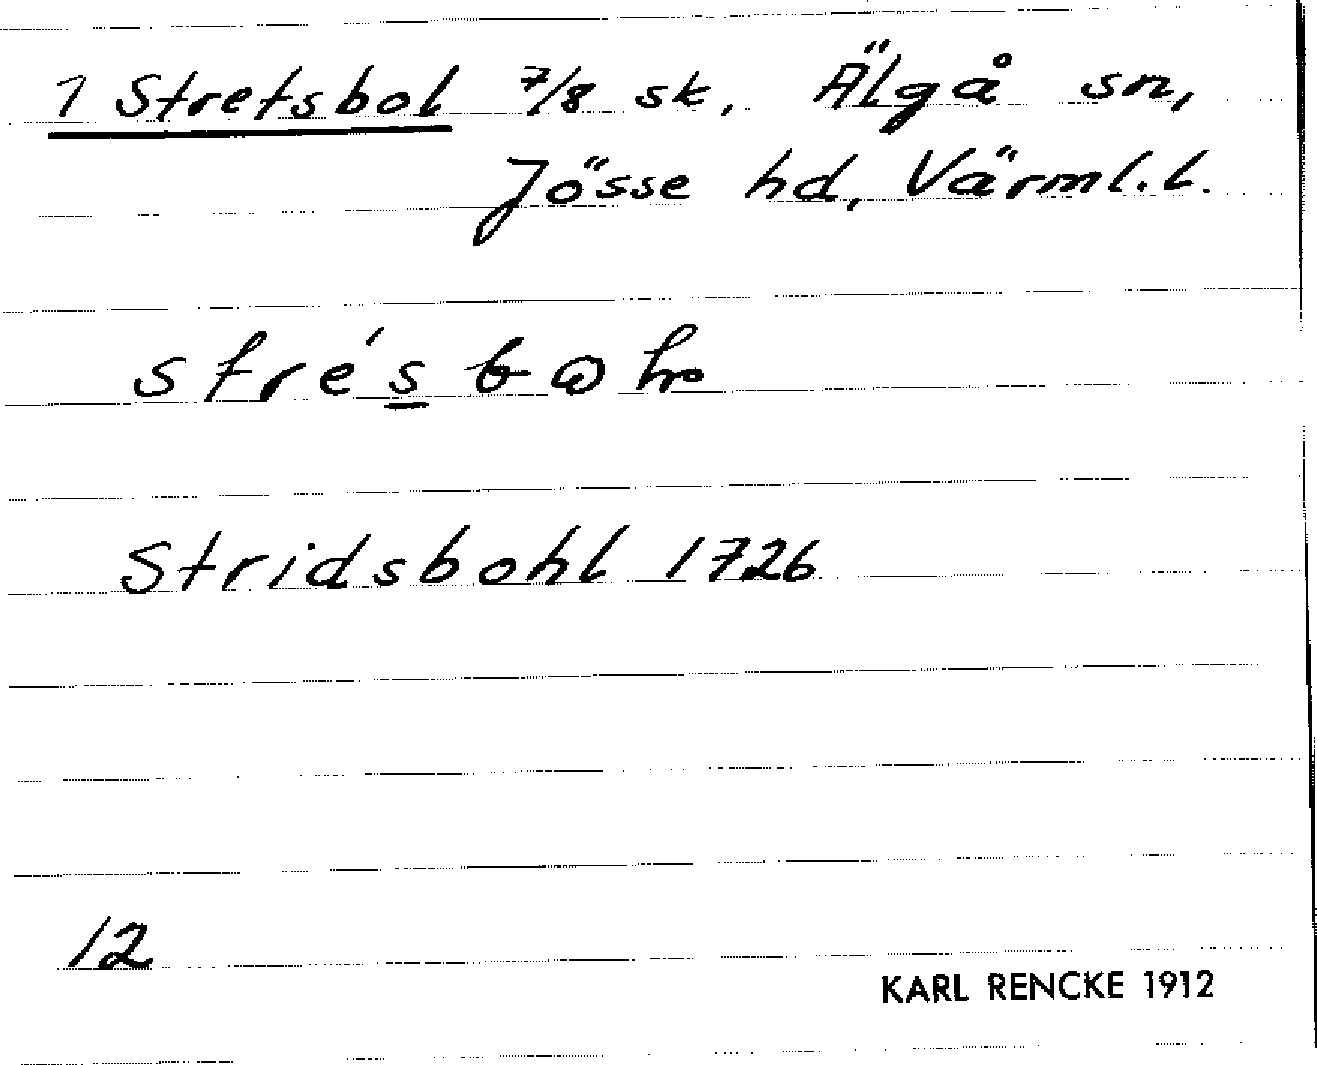 1 Stretsbol 7/8 sk. Älgå sn,
Jösse hd, Värml.l.
Stridsbohl 1726
12
KARL RENCKE 1912